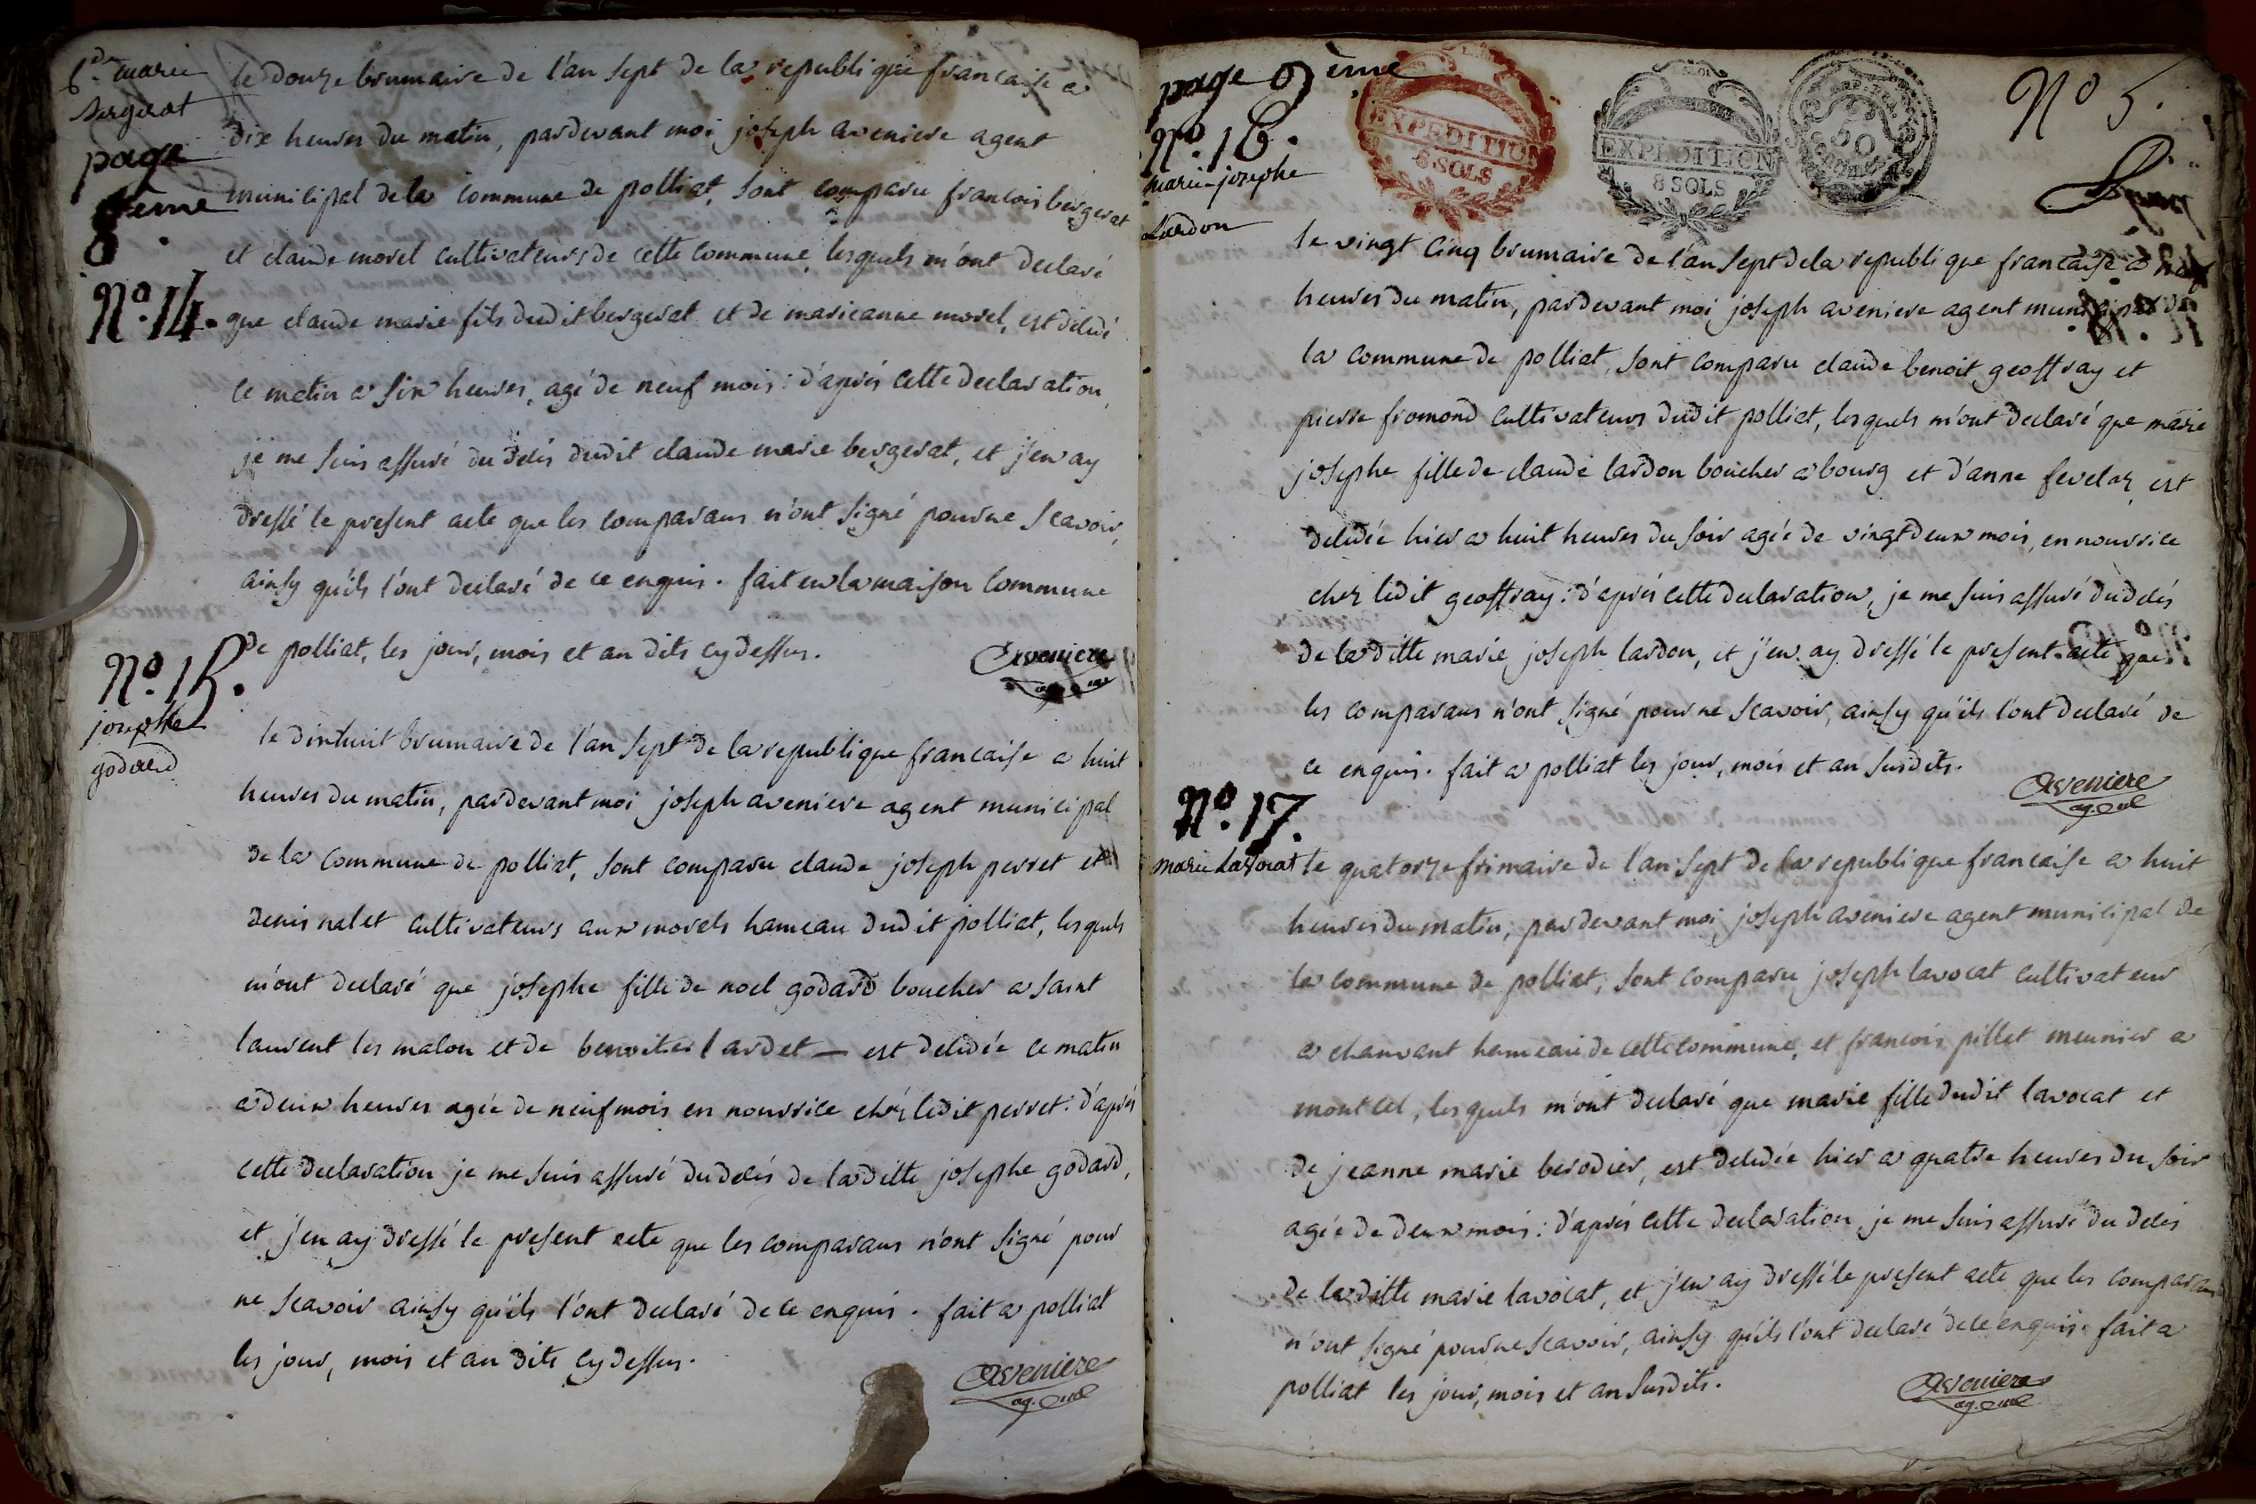 marie
bergerat
page
8ème
No. 14.
le douze brumaire de l'an sept de la republique francaise a
dix heures du matin, pardevant moi joseph aveniere agent
municipal de la commune de polliat, sont comparu francois bergerat
et claude morel cultivateurs de cette commune, lesquels m'ont declaré
que claude marie fils dudit bergerat et de marieanne morel, est décédé
ce matin a six heures, agé de neuf mois : d'après cette declaration,
je me suis assuré du décés dudit claude marie bergerat, et j'en ay
dressé le present acte que les comparans n'ont signé pour ne scavoir,
ainsy qu'ils l'ont declaré de ce enquis. fait en la maison commune
de polliat, les jour, mois et an dits cy dessus.
Aveniere
No. 15.
josephte
godard
le dixhuit brumaire de l'an sept de la republique francaise a huit
heures du matin, pardevant moi joseph aveniere agent municipal
de la commune de polliat, sont comparu claude joseph perret et
denis nalet cultivateurs aux morels hameau dudit polliat, lesquels
m'ont declaré que josephe fille de noel godard boucher a saint
laurent les macon et de benoite lardet — est decedée ce matin
a deux heures agée de neuf mois en nourrice chéz ledit perret : d'après
cette declaration je me suis assuré du decés de laditte josephe godard,
et j'en ay dressé le present acte que les comparans n'ont signé pour
ne scavoir ainsy qu'ils l'ont declaré de ce enquis. fait a polliat
les jour, mois et an dits cy dessus.
Aveniere
ag.
page 9ème
No. 16.
marie-josephe
Lardon
EXPEDITION
6 SOLS
EXPEDITION
8 SOLS
50
No 5.
le vingt cinq brumaire de l'an sept de la republique francaise a neuf
heures du matin, pardevant moi joseph aveniere agent municipal de
la commune de polliat, sont comparu claude benoit geoffray et
pierre fromond cultivateurs dudit polliat, lesquels m'ont declaré que marie
josephe fille de claude lardon boucher a bourg et d'anne fevelas, est
decedée hier a huit heures du soir agée de vingtdeux mois, en nourrice
chez ledit geoffray : d'après cette declaration, je me suis assuré du decés
de laditte marie joseph lardon, et j'en ay dressé le present acte que
les comparans n'ont signé pour ne scavoir, ainsy qu'ils l'ont declaré de
ce enquis. fait a polliat les jour, mois et an susdits.
Aveniere
ag.
No. 17.
marie Lavocat
le quatorze frimaire de l'an sept de la republique francaise a huit
heures du matin, pardevant moi joseph aveniere agent municipal de
la commune de polliat, sont comparu joseph lavocat cultivateur
a chanvent hameau de cette commune, et francois pillet meunier a
montcel, lesquels m'ont declaré que marie fille dudit lavocat et
de jeanne marie berodier, est decedée hier a quatre heures du soir
agée de deux mois : d'après cette declaration je me suis assuré du decés
de laditte marie lavocat, et j'en ay dressé le present acte que les comparans
n'ont signé pour ne scavoir, ainsy qu'ils l'ont declaré de ce enquis. fait a
polliat les jour, mois et an susdits.
Aveniere
ag.